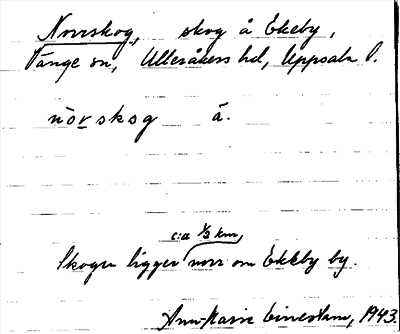 Norrskog, skog å Ekeby,
Vänge sn, Ulleråkers hd, Uppsala l.
nòrskog ä.
c:a ⅓ km
Skogen ligger norr om Ekeby by.
Ann-Marie 1943.